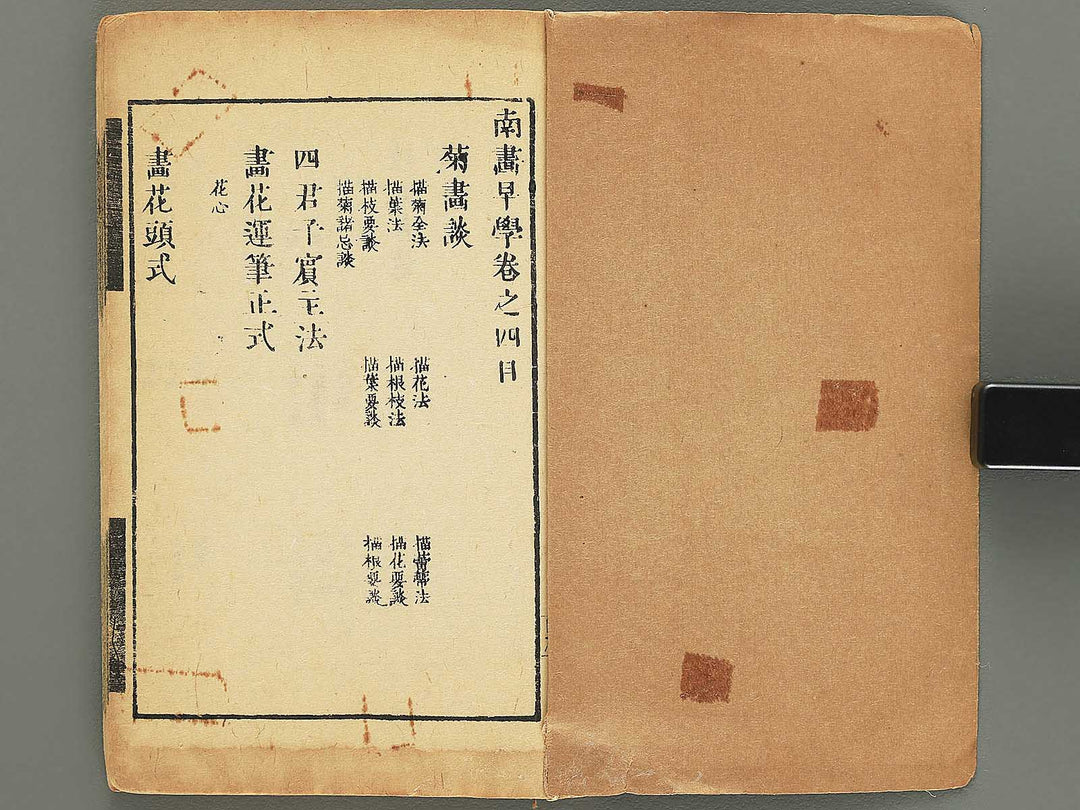 南畫早學卷之四目
菊畫談
描菊全法
描花法
描蕾蒂法
描葉法
描根枝法
描花要談
描枝要談
描葉要談
描根要談
描菊諸忌談
四君子賓主法
畫花運筆正式
花心
畫花頭式